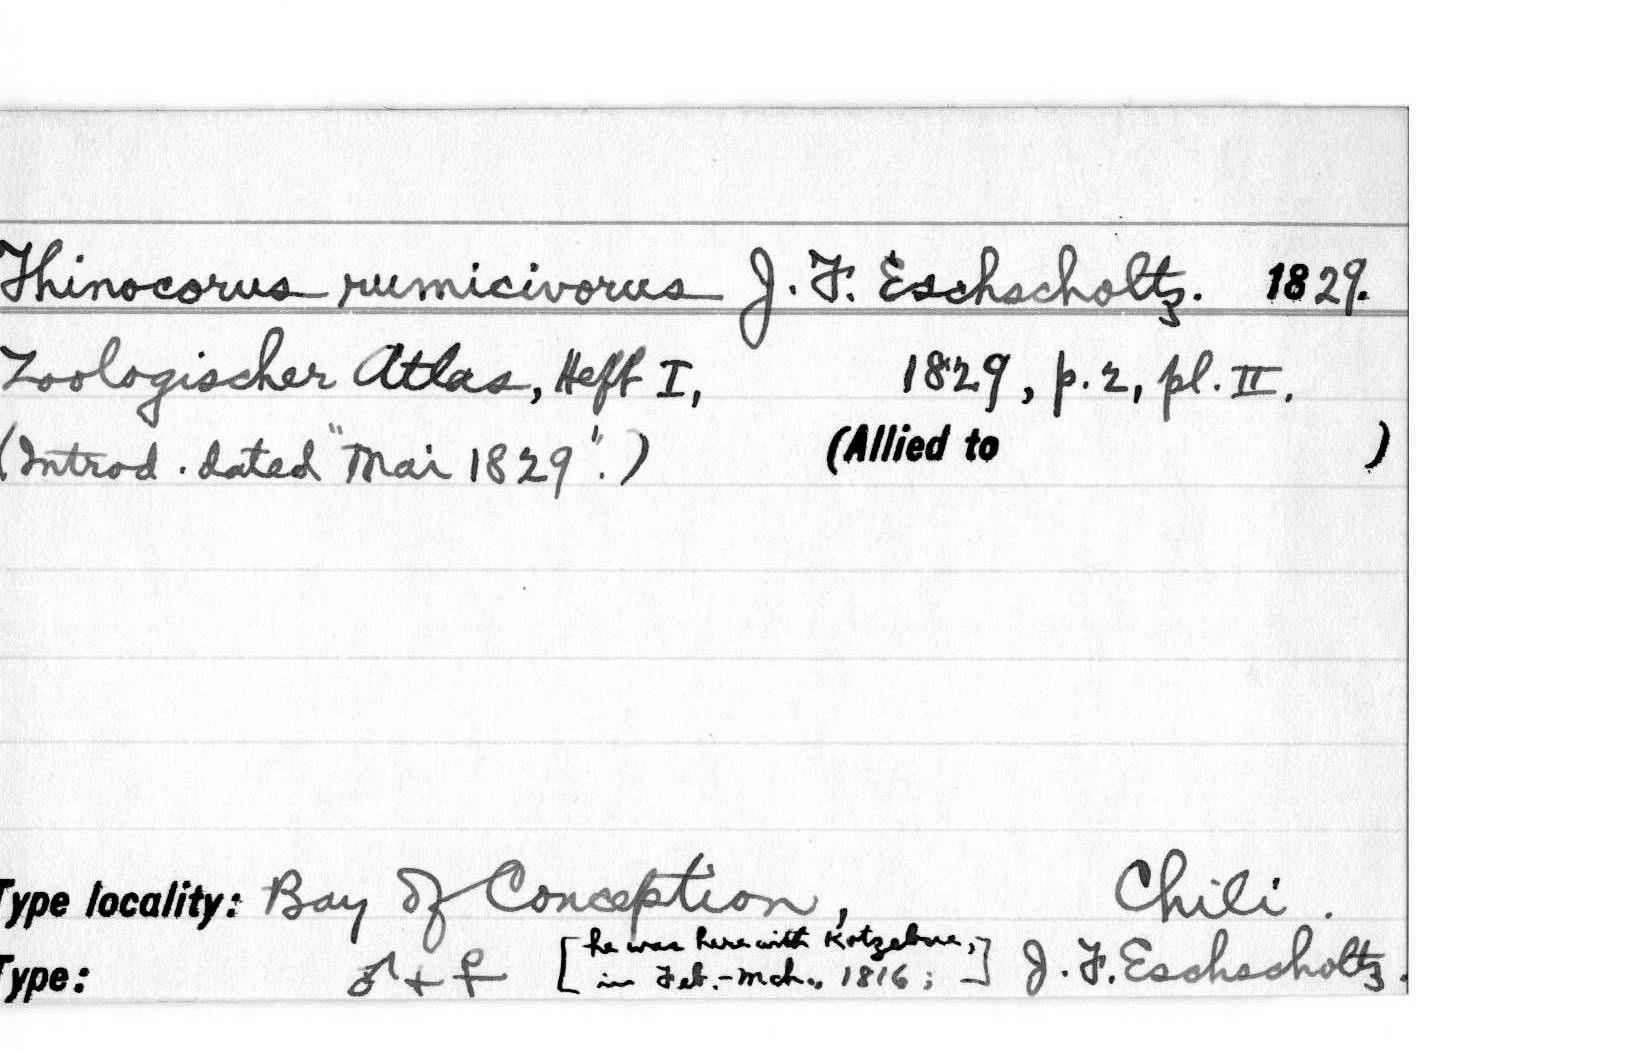 Thinocorus rumicivorus J. F. Eschscholtz. 1829.
Zoologischer Atlas, Heft I, 1829, p. 2, pl. II.
(Introd. dated "Mai 1829".) (Allied to )
Type locality: Bay of Conception, Chili.
Type: ♂ + ♀ [he was here with Kotzebue, in Feb.-Mch., 1816; ] J. F. Eschscholtz.